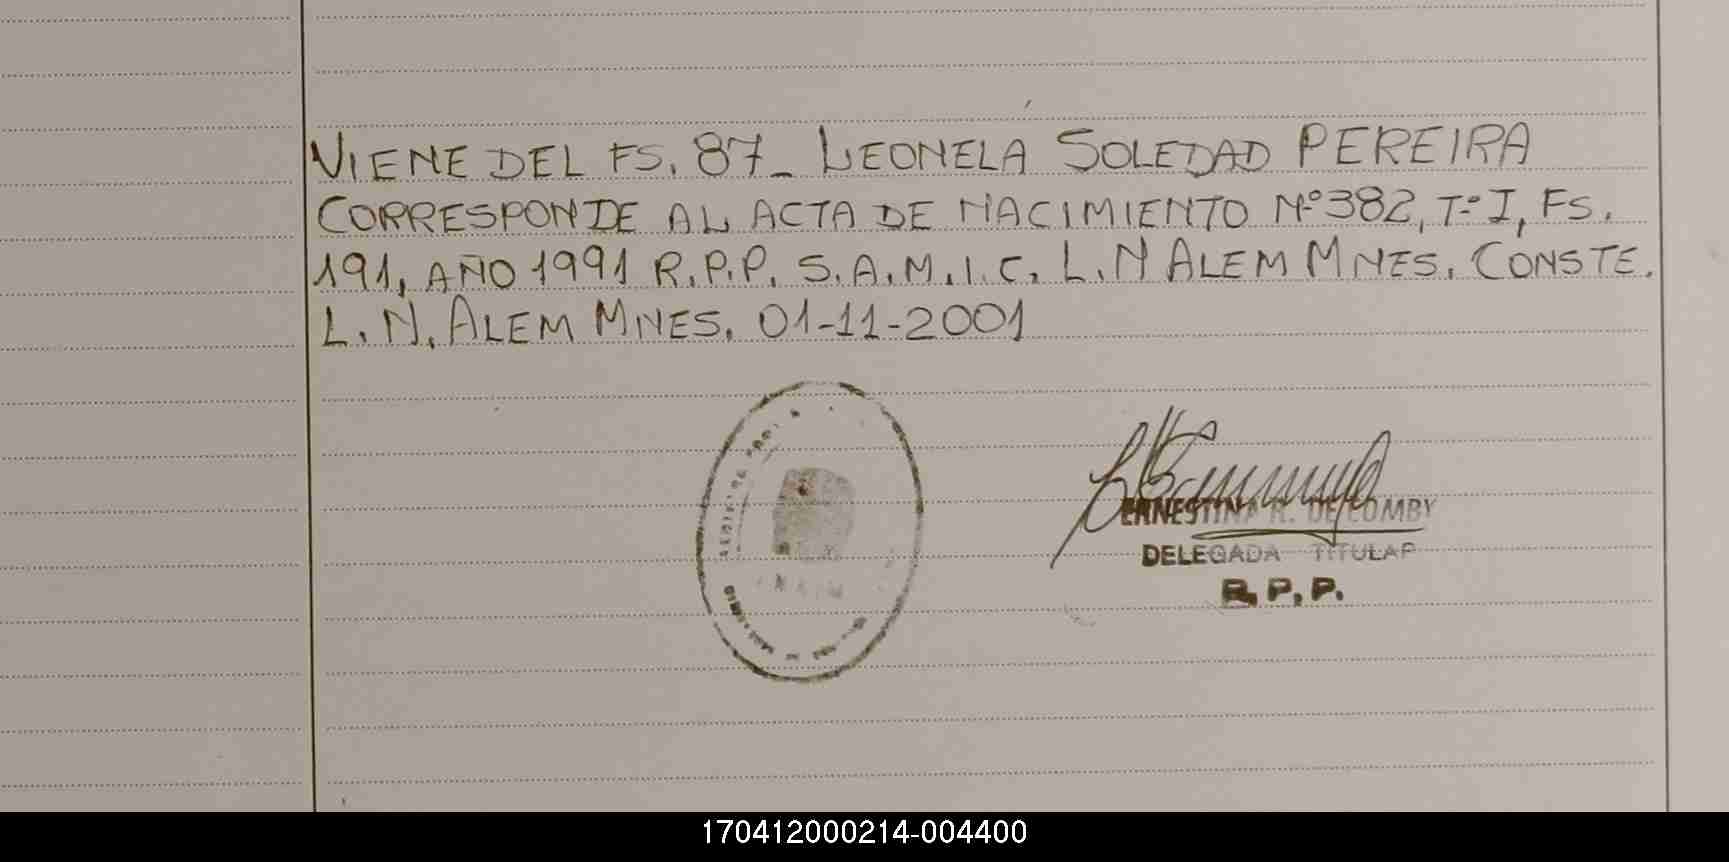 VIENE DEL FS. 87_ LEONELA SOLEDAD PEREIRA
CORRESPONDE AL ACTA DE NACIMIENTO Nº382, Tº I, FS.
191, AÑO 1991 R.P.P. S.A.M.I.C. L.N ALEM MNES. CONSTE.
L.N. ALEM MNES, 01-11-2001
ERNESTINA R. DE COMBY
DELEGADA TITULAR
R.P.P.
170412000214-004400